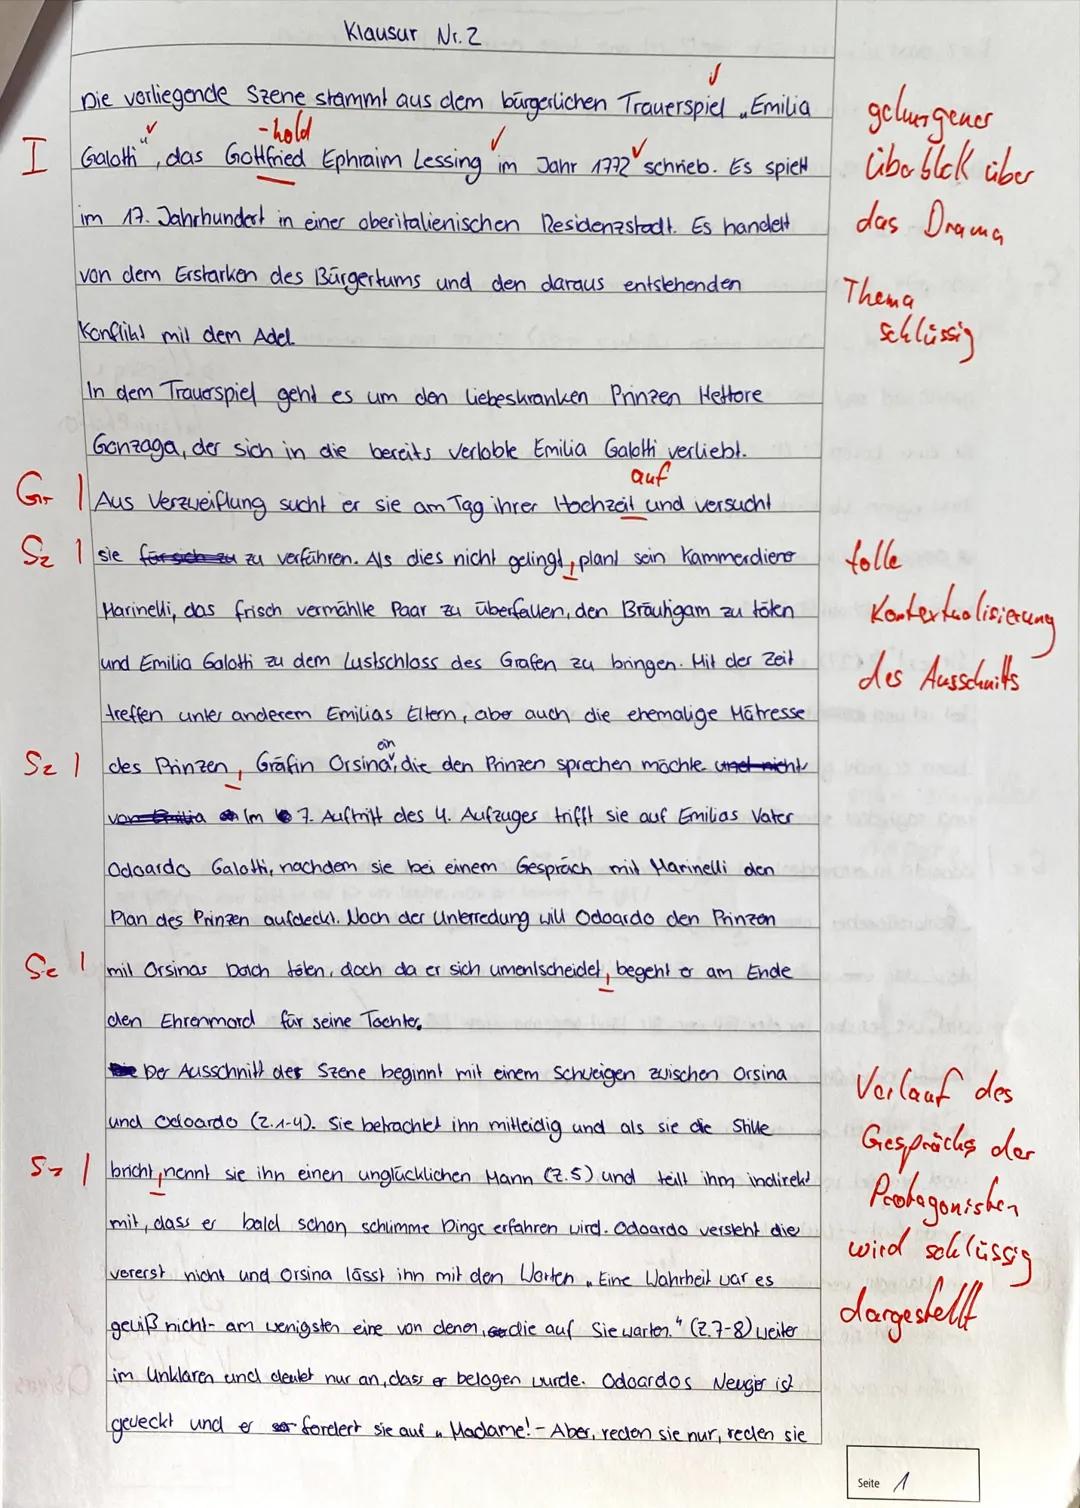 Klausur Nr. 2
Die vorliegende Szene stammt aus dem bürgerlichen Trauerspiel „Emilia
gelungener
- hold
I Galotti", das Gottfried Ephraim Lessing im Jahr 1772 schrieb. Es spielt
Überblick über
im 17. Jahrhundert in einer oberitalienischen Residenzstadt. Es handelt
das Drama
von dem Erstarken des Bürgertums und den daraus entstehenden
Thema
Konflikt mit dem Adel.
schlüssig
In dem Trauerspiel geht es um den liebeskranken Prinzen Hettore
Gonzaga, der sich in die bereits verlobte Emilia Galotti verliebt.
auf
Gr | Aus Verzweiflung sucht er sie am Tag ihrer Hochzeit und versucht
Sz | sie für sich zu zu verführen. Als dies nicht gelingt, plant sein Kammerdiener
tolle
Marinelli, das frisch vermählte Paar zu überfallen, den Bräutigam zu töten
Kontextualisierung
und Emilia Galotti zu dem Lustschloss des Grafen zu bringen. Mit der Zeit
des Ausschnitts
treffen unter anderem Emilias Eltern, aber auch die ehemalige Mätresse
ein
Sz | des Prinzen, Gräfin Orsina, die den Prinzen sprechen möchte und nicht
von Emilia Im 7. Auftritt des 4. Aufzuges trifft sie auf Emilias Vater
Odoardo Galotti, nachdem sie bei einem Gespräch mit Marinelli den
Plan des Prinzen aufdeckt. Nach der Unterredung will Odoardo den Prinzen
Sz | mit Orsinas Dolch töten, doch da er sich umentscheidet, begeht er am Ende
den Ehrenmord für seine Tochter.
Der Ausschnitt der Szene beginnt mit einem Schweigen zwischen Orsina
Verlauf des
und Odoardo (Z.1-4). Sie betrachtet ihn mitleidig und als sie die Stille
Gesprächs der
Sz | bricht, nennt sie ihn einen unglücklichen Mann (Z.5) und teilt ihm indirekt
Protagonisten
mit, dass er bald schon schlimme Dinge erfahren wird. Odoardo versteht die
wird schlüssig
vorerst nicht und Orsina lässt ihn mit den Worten „Eine Wahrheit war es
dargestellt
gewiß nicht- am wenigsten eine von denen, die auf Sie warten." (Z.7-8) weiter
im Unklaren und deutet nur an, dass er belogen wurde. Odoardos Neugier ist
geweckt und er fordert sie auf „Madame! - Aber, reden sie nur, reden sie
Seite 1